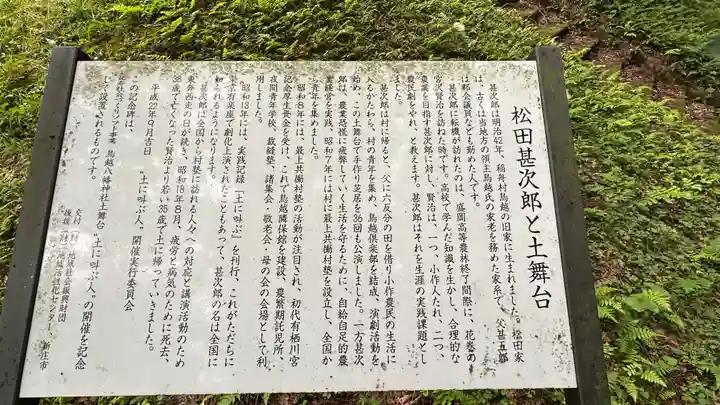 松田甚次郎と土舞台
甚次郎は明治42年、稲舟村鳥越の旧家に生まれました。松田家
は、古くは当地方の領主鳥越氏の家老を務めた家系で、父甚五郎
は郡会議員なども勤めた人です。
甚次郎に転機が訪れたのは、盛岡高等農林終了間際に、花巻の
宮沢賢治を訪ねた時です。高校で学んだ知識を生かし、合理的な
農業を目指す甚次郎に対し、賢治は、一つ、小作人たれ、二つ、
農民劇をやれ、と教えます。甚次郎はそれを生涯の実践課題とし
ました。
甚次郎は村に帰ると、父に六反分の田を借り小作農民の生活に
入るかたわら、村の青年を集め、鳥越倶楽部を結成、演劇活動を
始め、この土舞台で手作り芝居を36回も公演しました。一方甚次
郎は、農業恐慌に疲弊していく生活を守るために、自給自足的農
業経営を実践、昭和7年には村に最上共働村塾を設立し、全国か
ら青年を集めました。
昭和8年には、最上共働村塾の活動が注目され、初代有栖川宮
記念厚生資金を受け、これで鳥越隣保館を建設、農繁期託児所
夜間青年学校、裁縫塾、諸集会・敬老会・母の会の会場として利
用しました。
昭和13年には、実践記録『土に叫ぶ』を刊行、これがただちに
東京有楽座で劇化上演されたこともあって、甚次郎の名は全国に
知られるようになります。
甚次郎は全国から村塾に訪れる人々への対応と講演活動のため
東奔西走の日が続き、昭和18年8月、疲労と病気のために死去、
38歳で亡くなった賢治より若い35歳で土に帰っていきました。
平成22年9月吉日 “土に叫ぶ人”開催実行委員会
この記念碑は、
鳥越八幡神社土舞台 “土に叫ぶ人”の開催を記念
して設置されるものです。